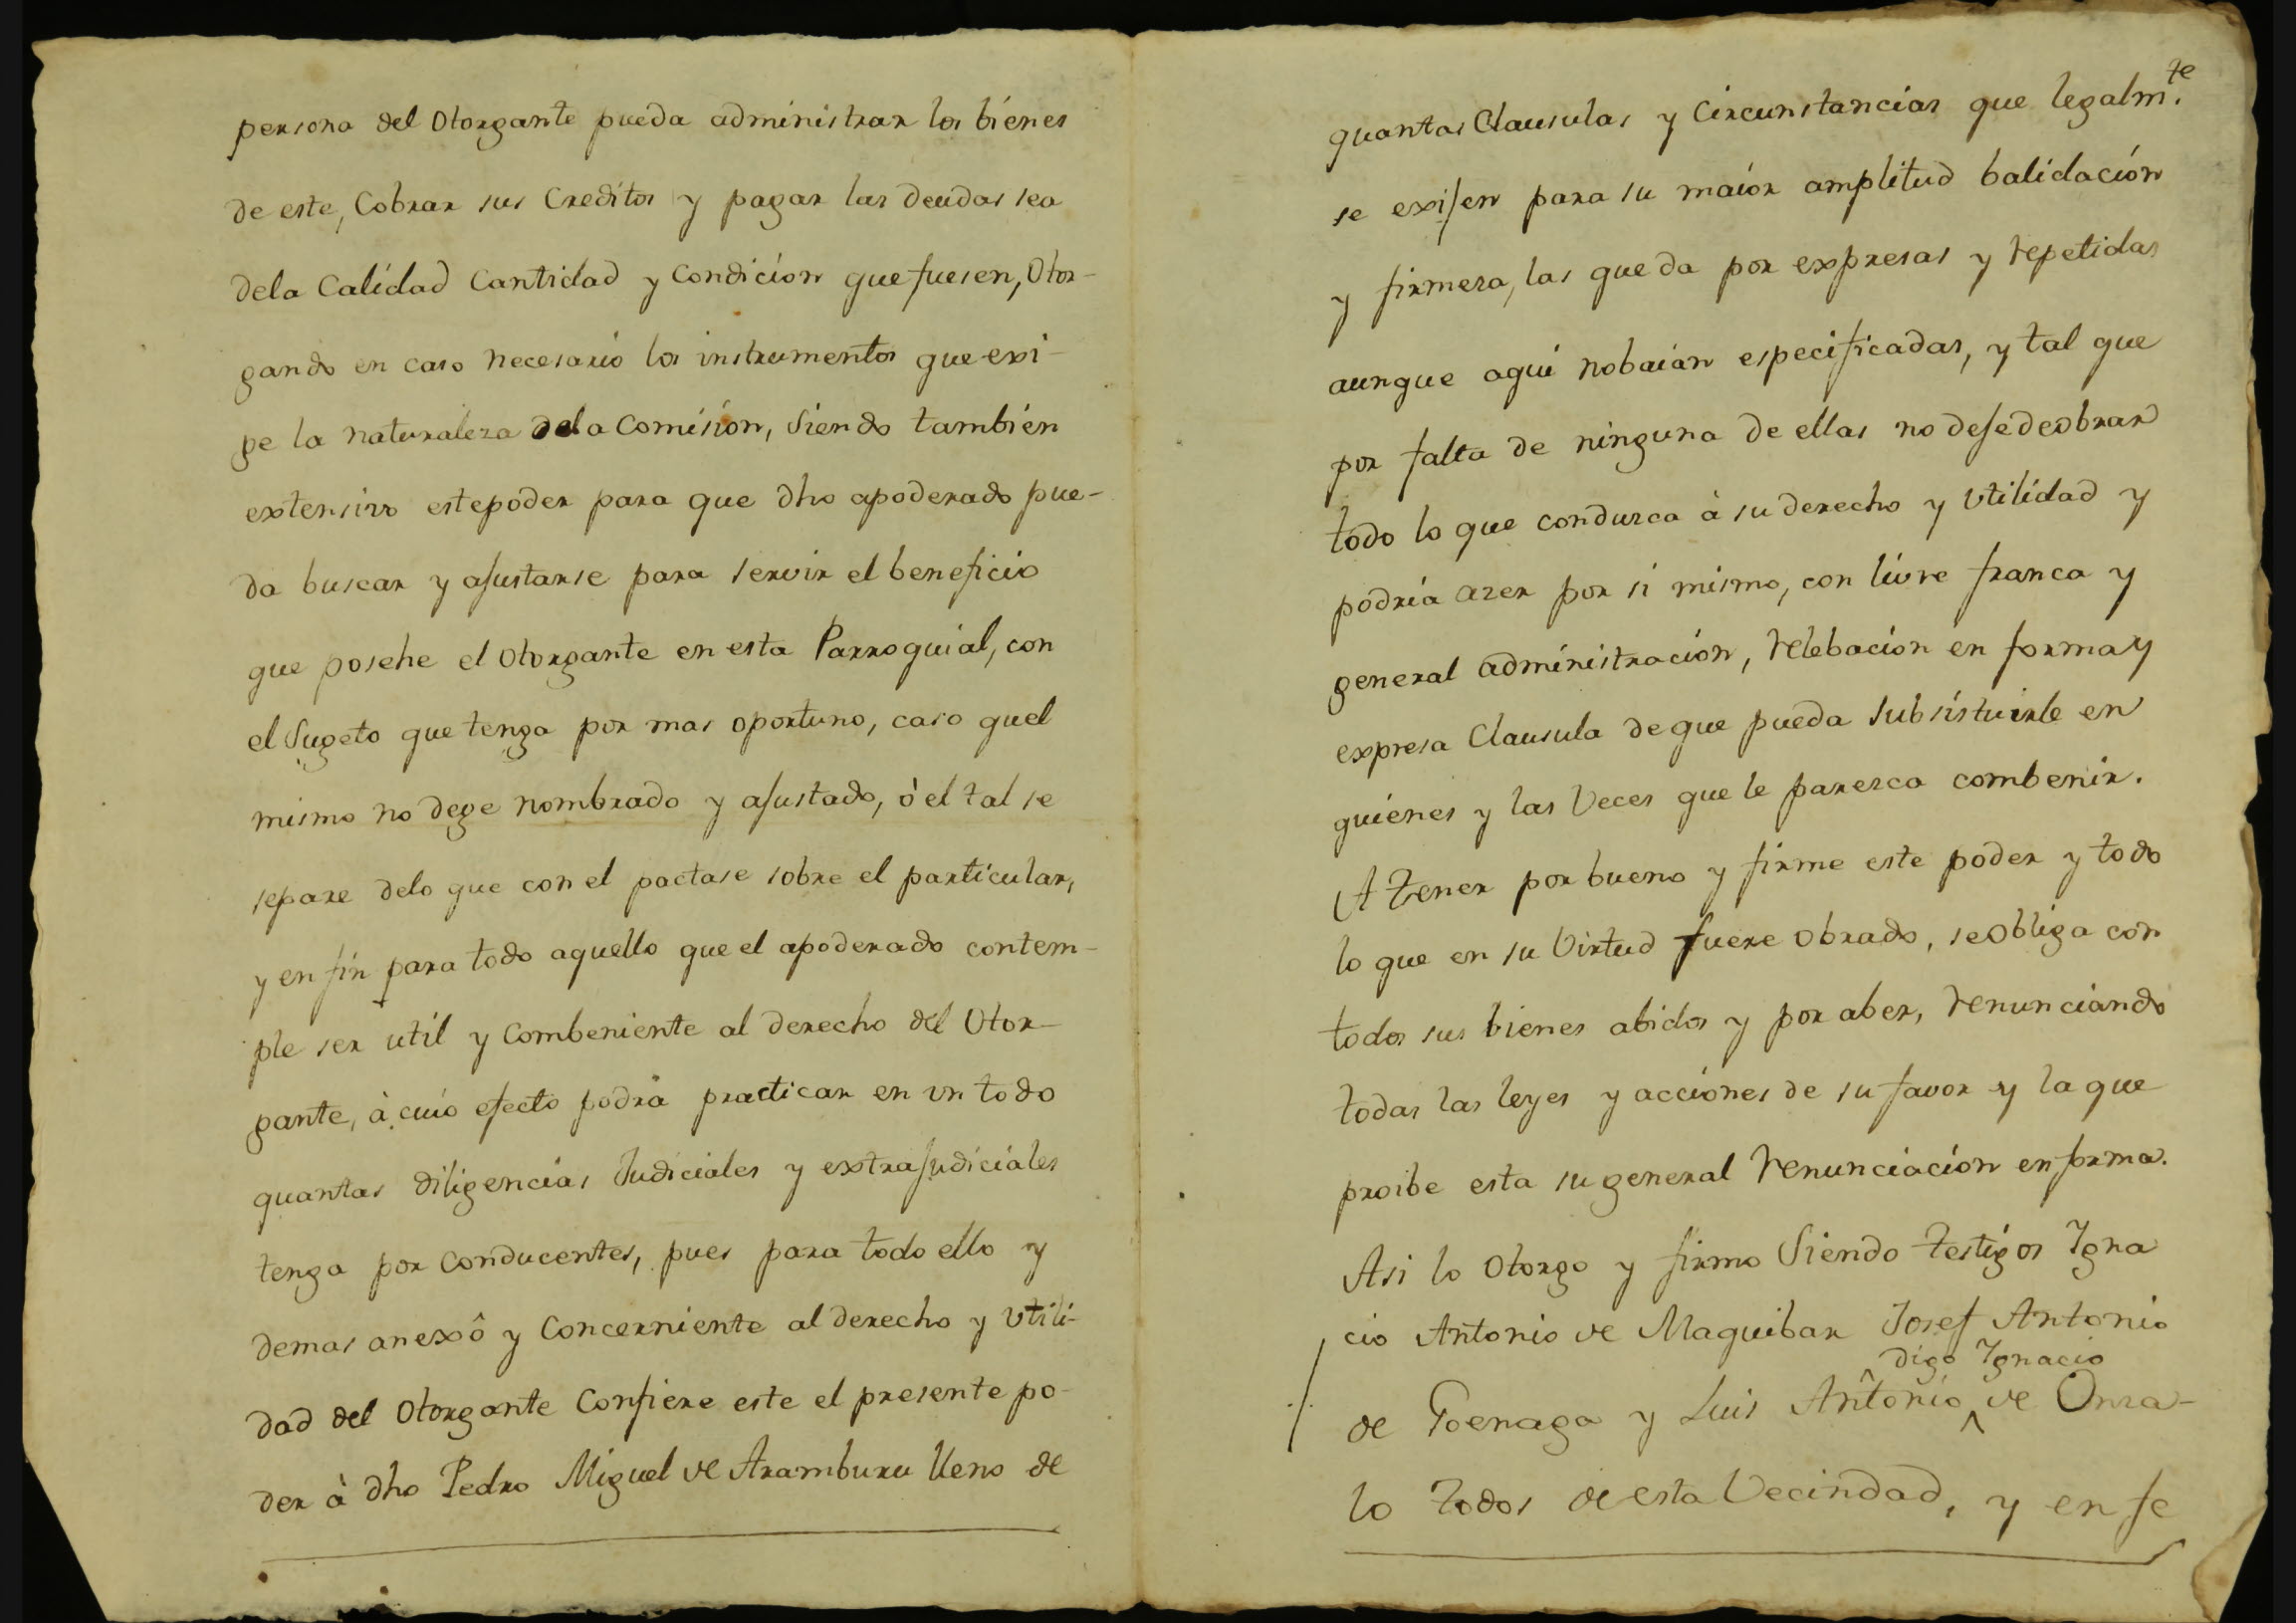 persona del Otorgante pueda administrar los bienes
de este, Cobrar sus Creditos y pagar las deudas sea
dela Calidad Cantidad y Condicion que fuesen, Otor-
gando en caso necesario los instrumentos que exi-
ge la naturaleza dela Comision, Siendo tambien
extensivo estepoder para que dho apoderado pue-
da buscar y ajustarse para servir el beneficio
que posehe el Otorgante en esta Parroquial, con
el Sugeto que tenga por mas oportuno, caso quel
mismo no dege nombrado y ajustado, ò el tal se
separe delo que con el pactase sobre el particular,
y en fin para todo aquello que el apoderado contem-
ple ser util y Combeniente al derecho del Otor-
gante, à cuio efecto podrà practicar en un todo
quantas diligencias Judiciales y extrajudiciales
tenga por Conducentes, pues para todo ello y
demas anexô y Concerniente al derecho y Utili-
dad del Otorgante Confiere este el presente po-
der à dho Pedro Miguel de Aramburu lleno de
quantas Clausulas y Circunstancias que legalm.te
se exijen para su maior amplitud balidación
y firmeza, las que da por expresas y repetidas
aunque aqui nobaian especificadas, y tal que
por falta de ninguna de ellas no dejedeobrar
todo lo que conduzca à su derecho y Utilidad y
podria azer por si mismo, con livre franca y
general administracion, relebacion en forma y
expresa Clausula de que pueda Subsistuirle en
quienes y las Veces que le parezca combenir.
A tener por bueno y firme este poder y todo
lo que en su Virtud fuere obrado, se obliga con
todos sus bienes abidos y por aber, renunciando
todas las leyes y acciones de su favor y la que
proibe esta su general renunciacion en forma.
Asi lo Otorgo y firmo Siendo testigos Igna
cio Antonio de Maguibar Josef Antonio
digo Ignacio
de Goenaga y Luis Antonio de Onza-
lo todos de esta Vecindad, y en fe